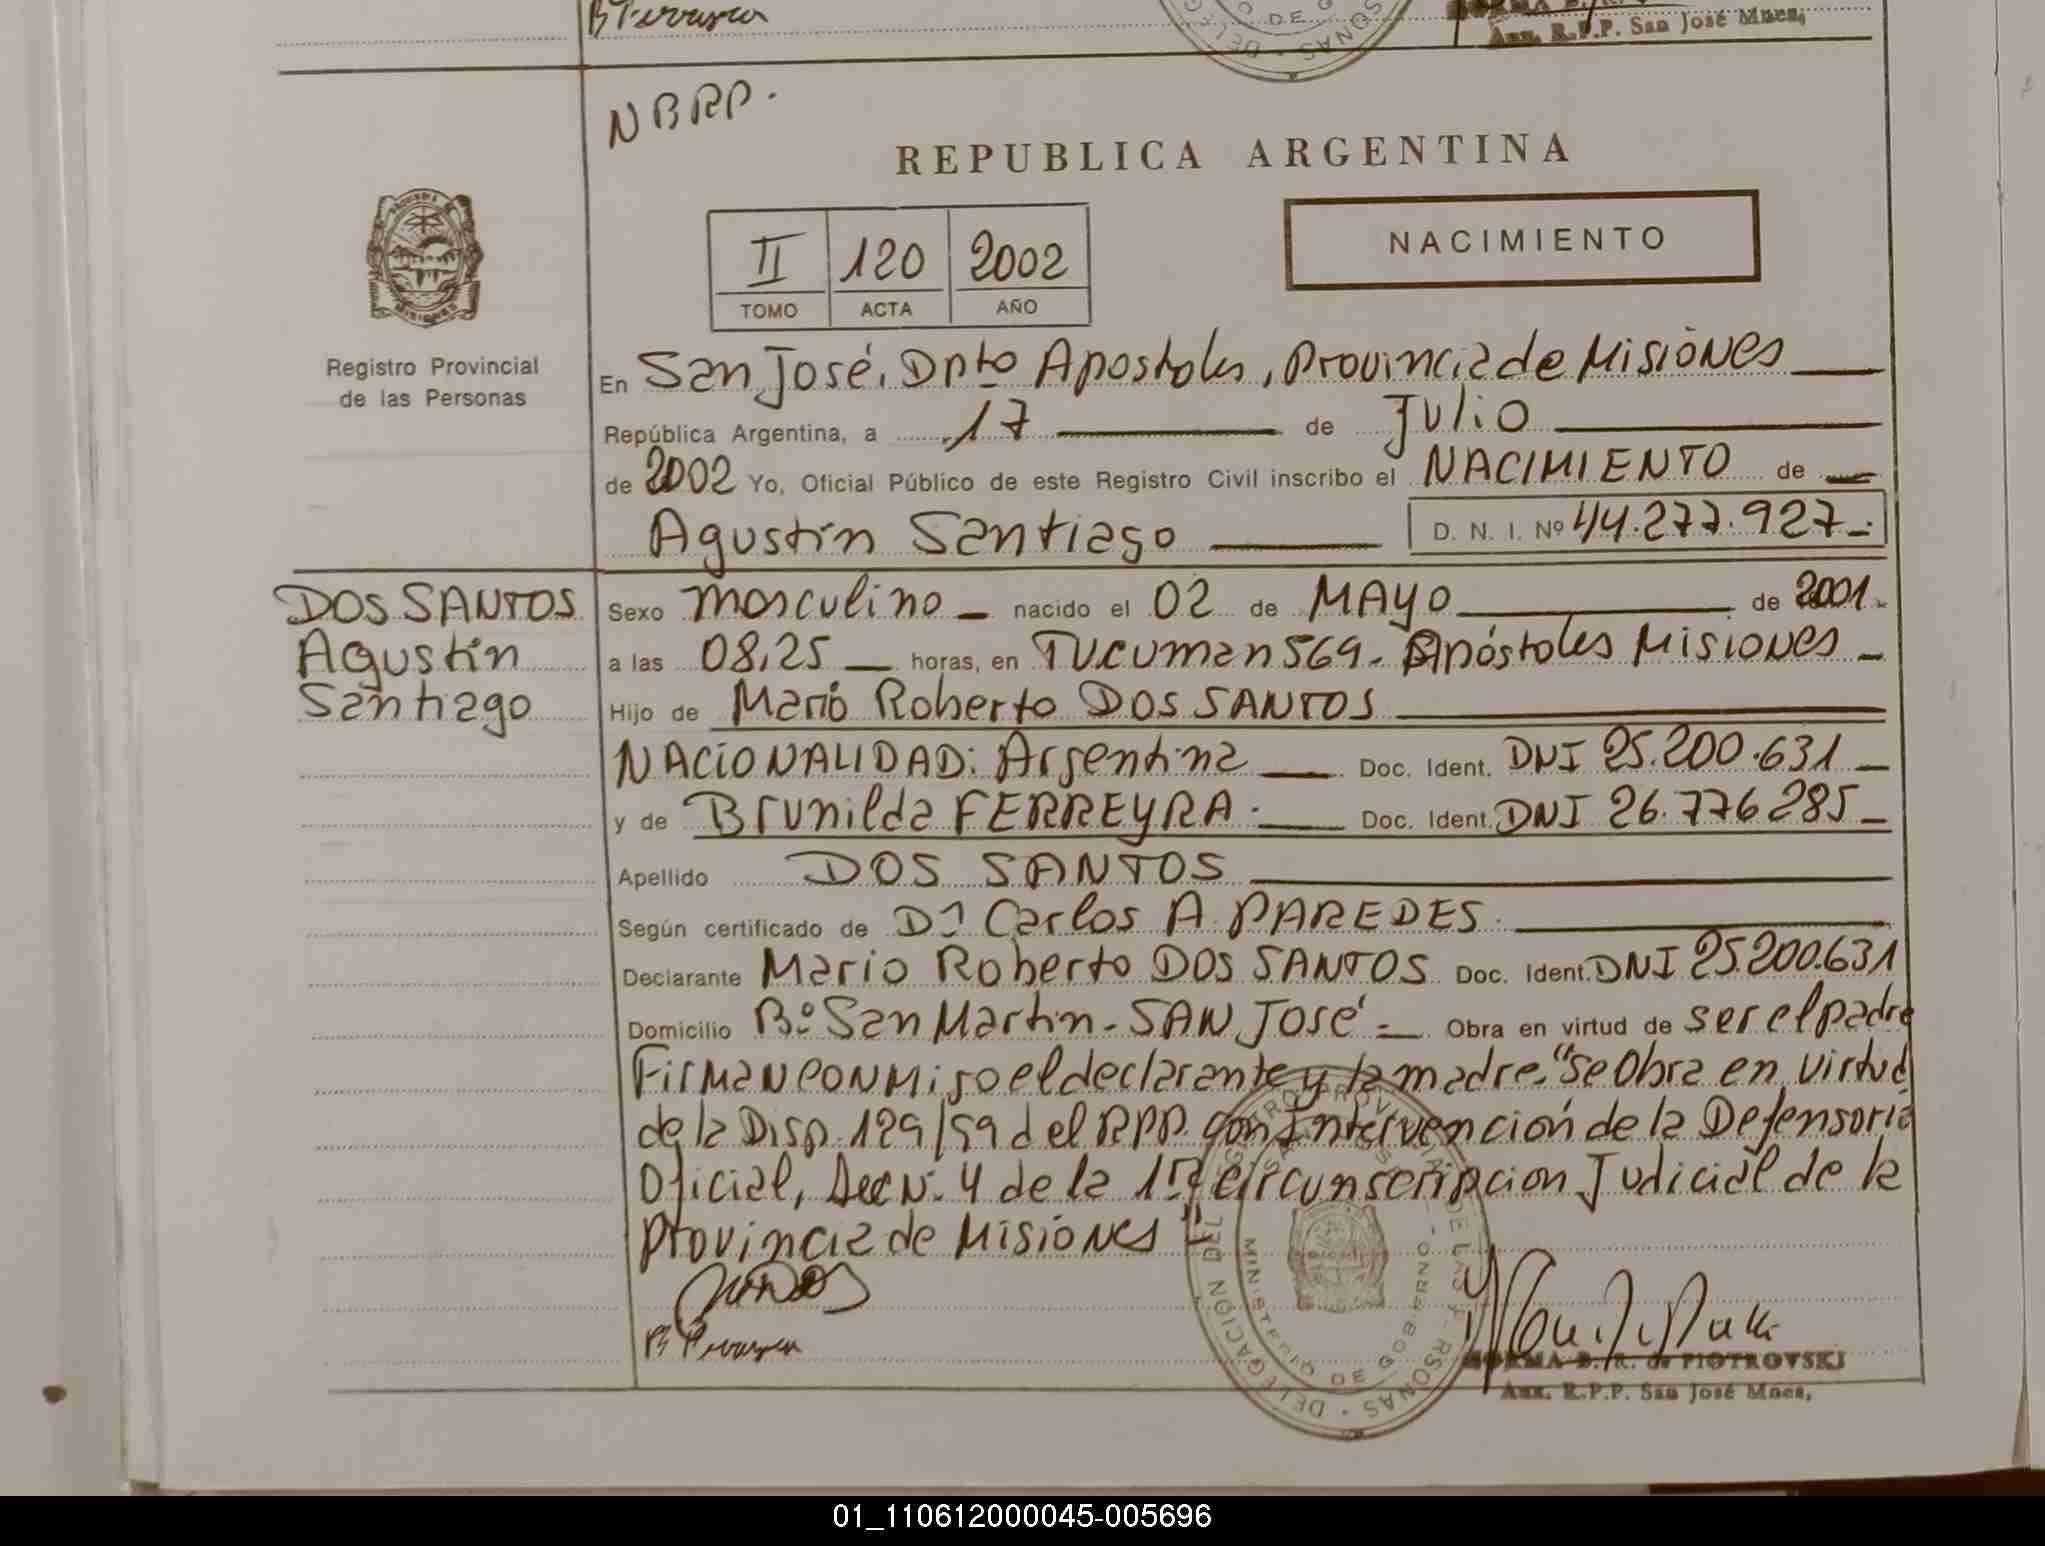 B Ferreyra
Aux. R.P.P. San José Mnes,
NBRP.
REPUBLICA ARGENTINA
NACIMIENTO
II 120 2002
TOMO ACTA AÑO
Registro Provincial
de las Personas
En San José, Dpto Apostoles, Provincia de Misiones
República Argentina, a 17 de Julio
de 2002 Yo, Oficial Público de este Registro Civil inscribo el NACIMIENTO de
Agustín Santiago D. N. I. Nº 44.277.927-.
DOS SANTOS
Agustín
Santiago
Sexo masculino nacido el 02 de MAYO de 2001.
a las 08,25 horas, en Tucuman 569. Apóstoles Misiones
Hijo de Mario Roberto DOS SANTOS
NACIONALIDAD: Argentina Doc. Ident. DNI 25.200.631
y de Brunilda FERREYRA. Doc. Ident. DNI 26.776285
Apellido DOS SANTOS
Según certificado de Dr Carlos A. PAREDES.
Declarante Mario Roberto DOS SANTOS Doc. Ident. DNI 25.200.631
Domicilio Bº San Martin - SAN José Obra en virtud de ser el padre
Firman conmigo el declarante y la madre. "Se Obra en virtud
de la Disp. 129/99 del RPP. con Intervención de la Defensoria
Oficial, Sec Nº 4 de la 1ra circunscripcion Judicial de la
Provincia de Misiones"
B Ferreyra
NORMA B. R. de PIOTROVSKI
Aux. R.P.P. San José Mnes,
REGISTRO PROVINCIAL DE LAS PERSONAS - DELEGACIÓN
SAN JOSÉ
MINISTERIO DE GOBIERNO
MISIONES
01_110612000045-005696